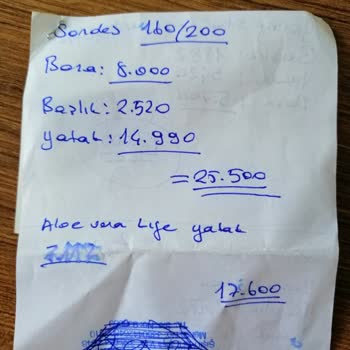 Sordes 160/200
Baza: 8.000
Başlık: 2.520
Yatak: 14.990
= 25.500
Aloe vera life yatak
17.600